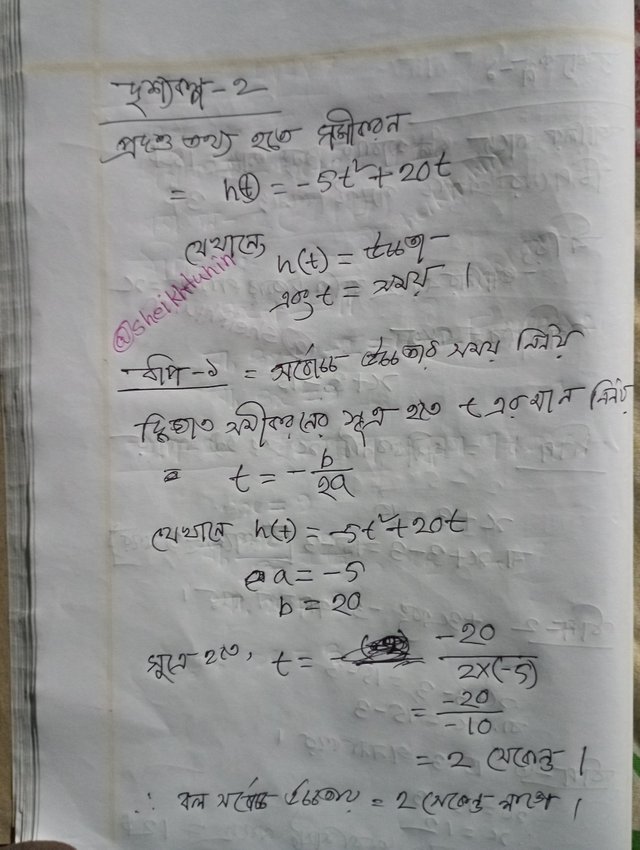 দৃশ্যকল্প - 2
প্রদত্ত তথ্য হতে সমীকরন
= h(t) = -5t² + 20t
যেখানে
h(t) = উচ্চতা
এবং t = সময় ।
@sheikhtuhin
ধাপ - ১ = সর্বোচ্চ উচ্চতার সময় নির্নয়
দ্বিঘাত সমীকরনের সূত্র হতে t এর মান নির্নয়
= t = - b/2a
যেখানে h(t) = -5t² + 20t
a = -5
b = 20
সূত্র হতে, t = -20/2×(-5)
= -20/-10
= 2 সেকেন্ড ।
∴ বল সর্বোচ্চ উচ্চতায় = 2 সেকেন্ড লাগে ।